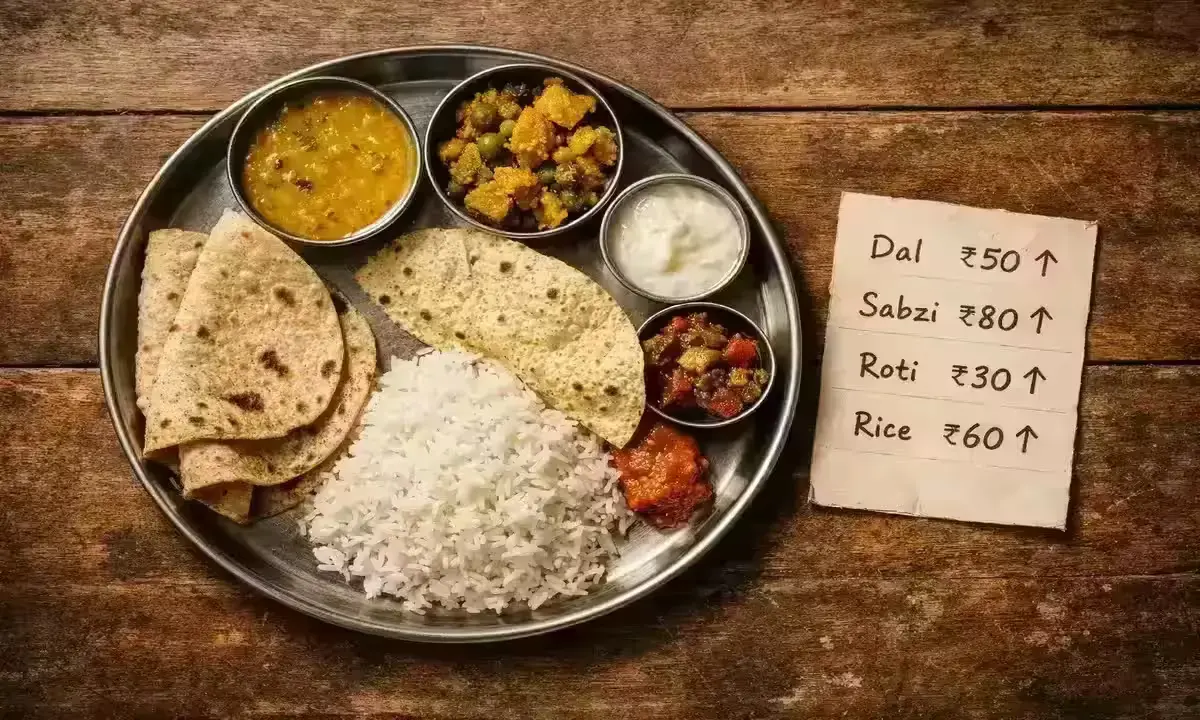 Dal ₹50 ↑
Sabzi ₹80 ↑
Roti ₹30 ↑
Rice ₹60 ↑